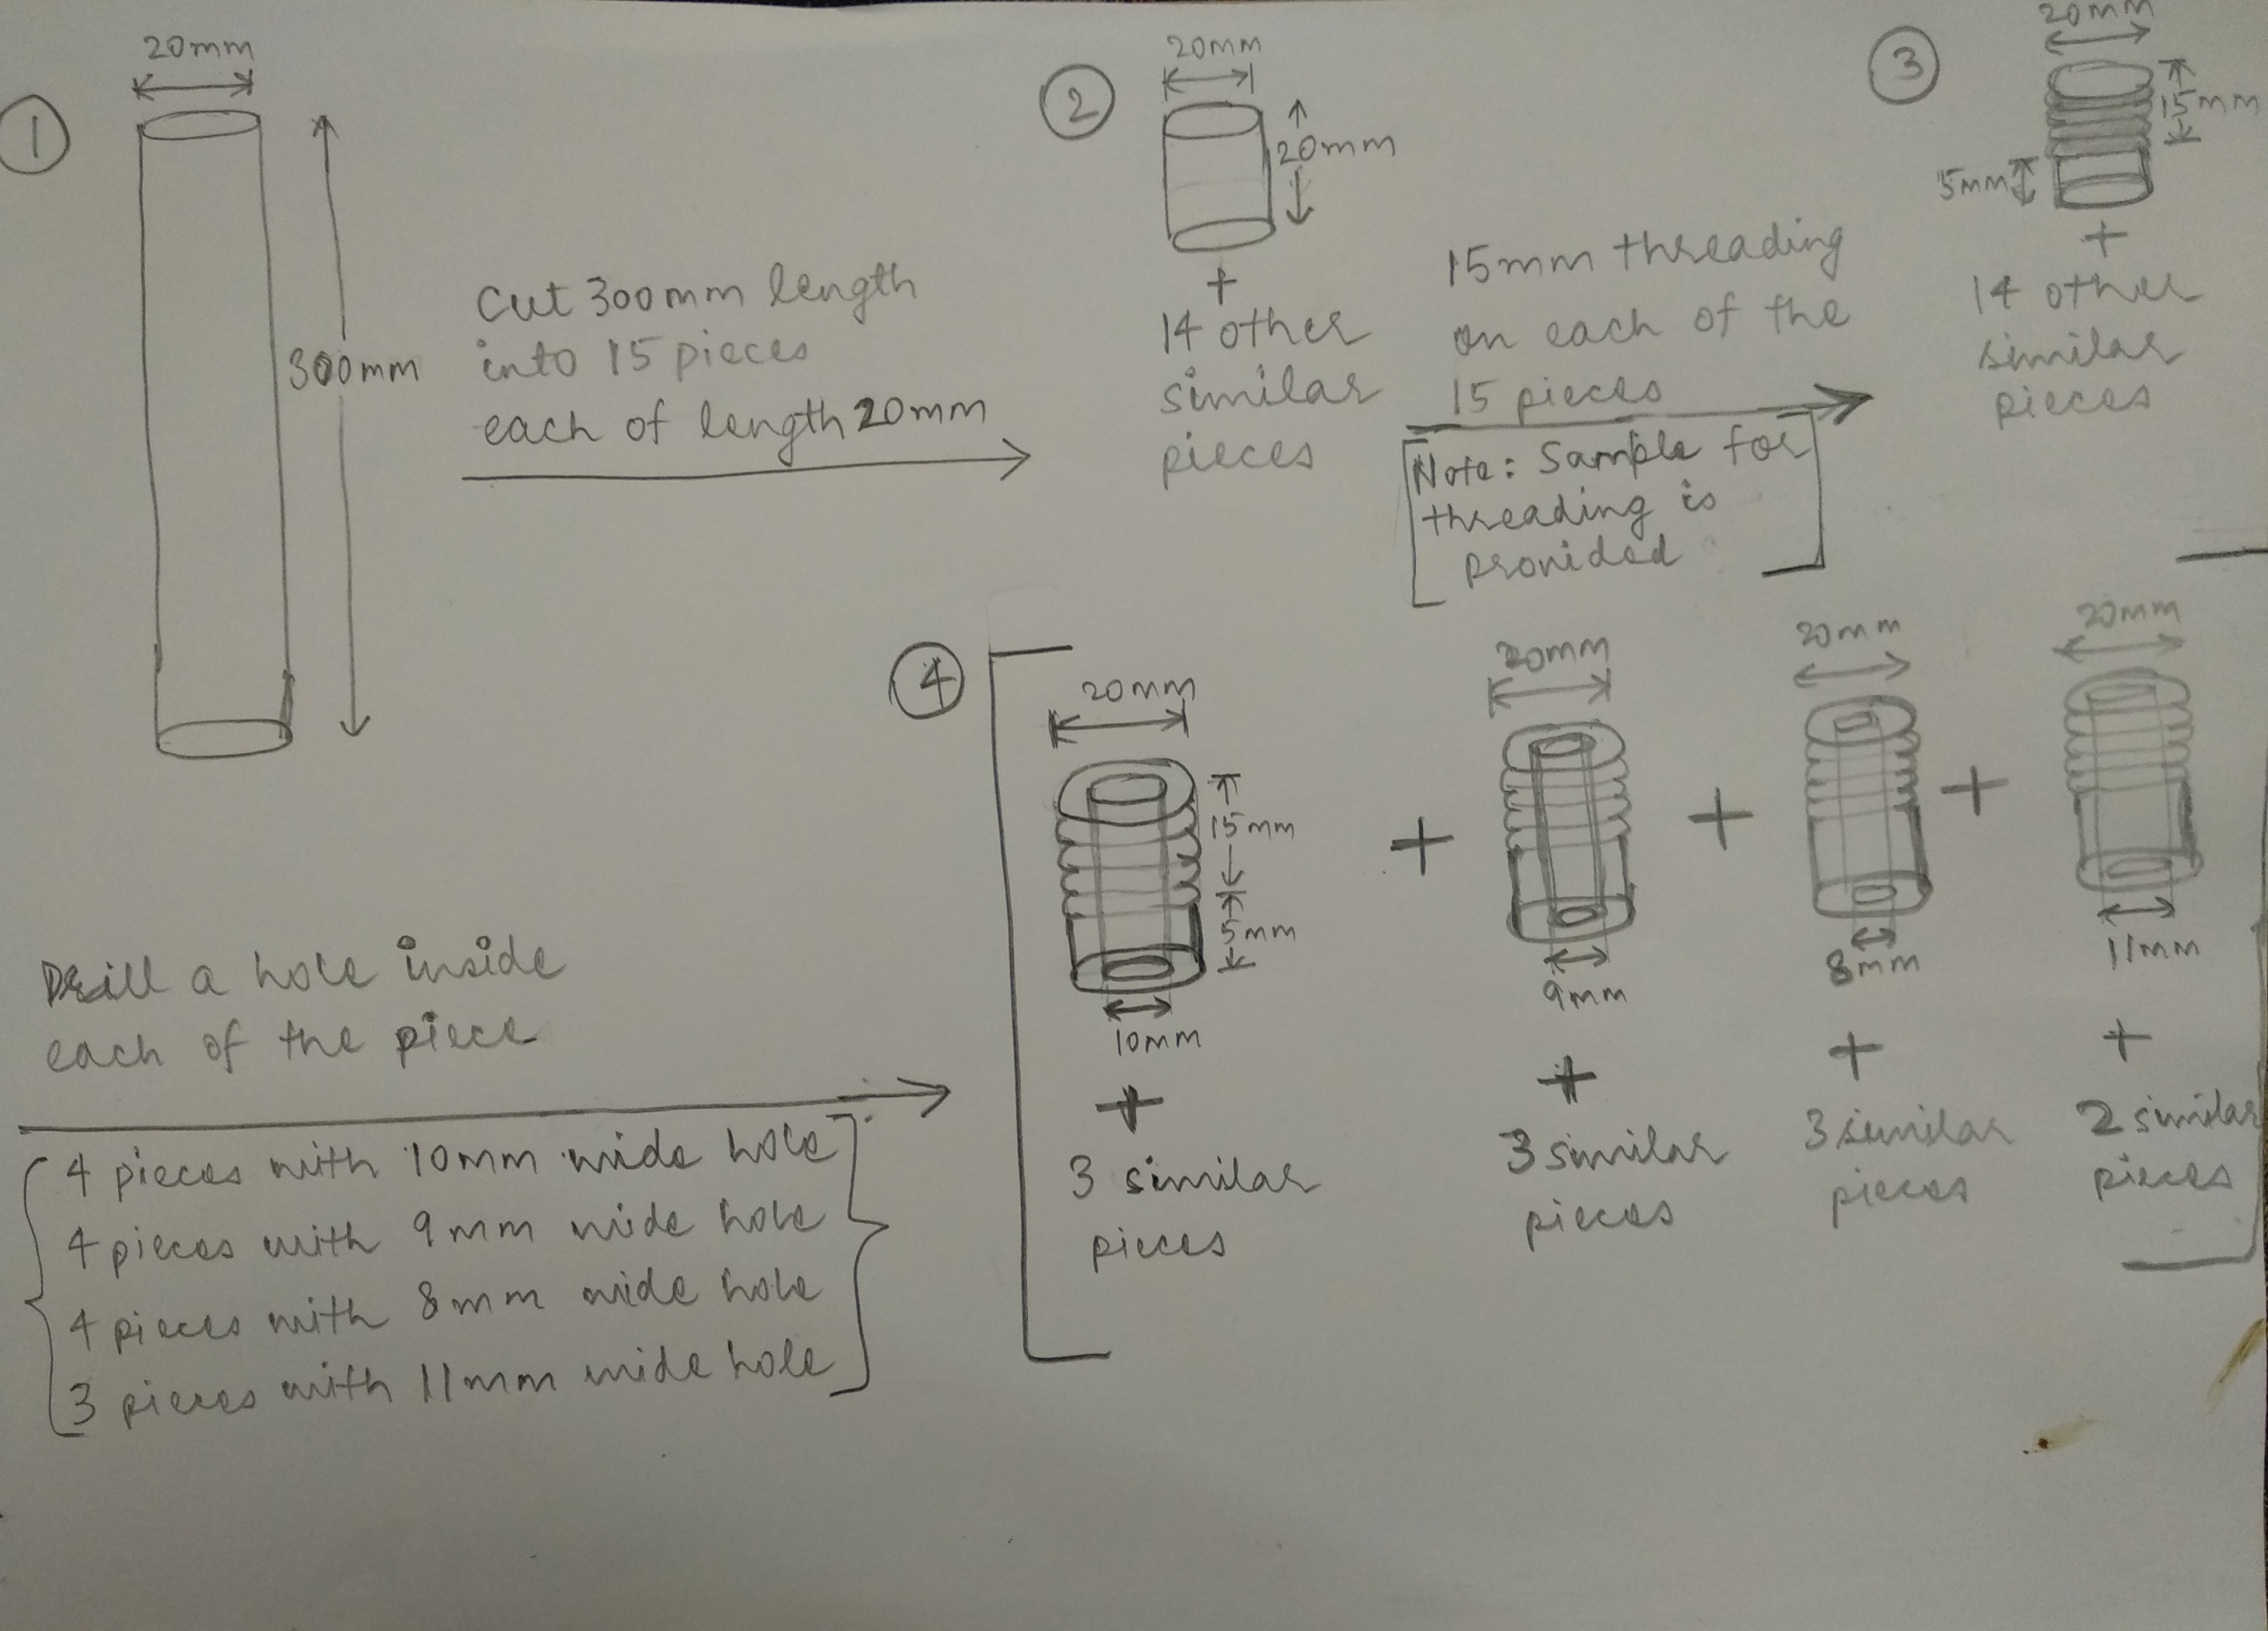 1
20mm
300mm
cut 300mm length
into 15 pieces
each of length 20mm
2
20mm
20mm
+
14 other
similar
pieces
15mm threading
on each of the
15 pieces
[Note: Sample for
threading is
provided]
3
20mm
15mm
5mm
+
14 other
similar
pieces
Drill a hole inside
each of the piece
{4 pieces with 10mm wide hole
4 pieces with 9mm wide hole
4 pieces with 8mm wide hole
3 pieces with 11mm wide hole}
4
20mm
15mm
5mm
10mm
+
3 similar
pieces
+
20mm
9mm
+
3 similar
pieces
+
20mm
8mm
+
3 similar
pieces
+
20mm
11mm
+
2 similar
pieces